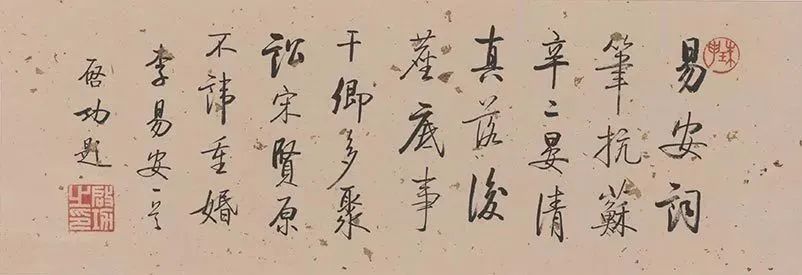 珠申
易安詞
筆抗蘇
辛二晏清
真落後
塵底事
干卿多聚
訟宋賢原
不諱重婚
李易安一首
啟功題
啟功之印